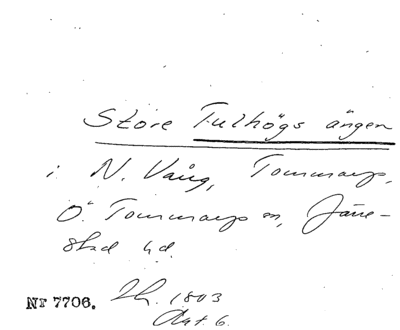 Store Tulhögs ängen
i N. Vång, Tommarps,
Ö. Tommarps sn, Järre-
stad hd.
Nr 7706. Sk. 1803
Akt 6.